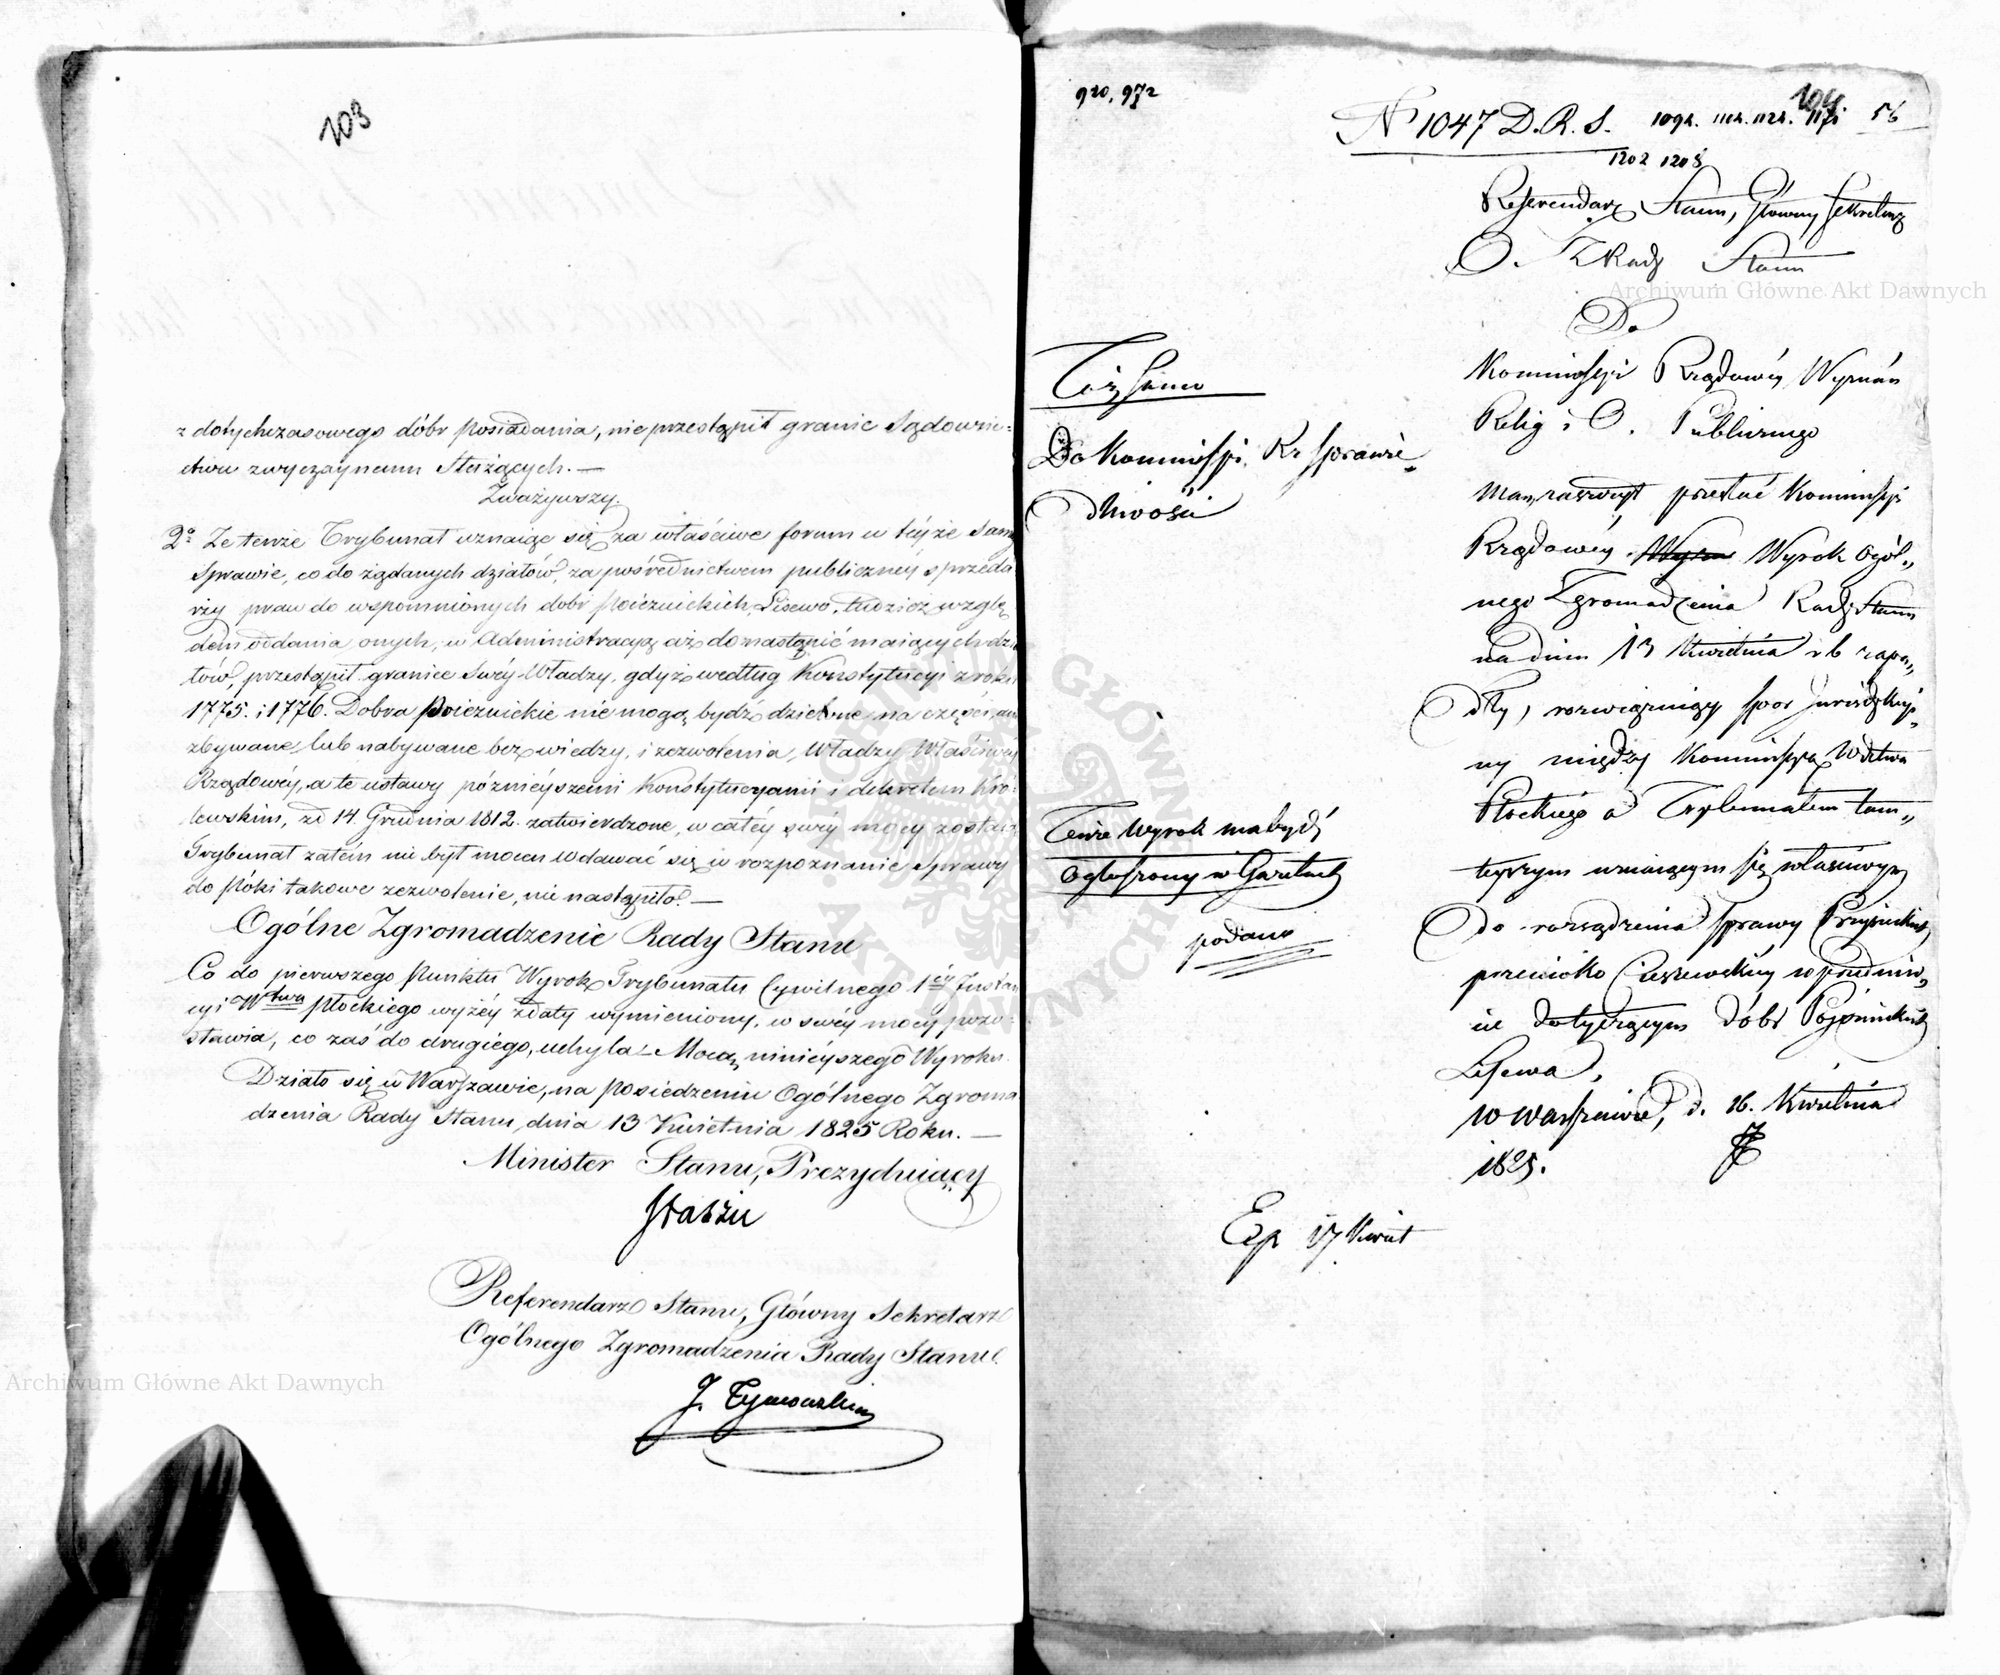 103
z dotychczasowego dóbr posiadania, nie przestąpił granic Sądownic=
ctwu zwyczaynemu Służących. —
Zważywszy.
2º Że tenże Trybunał uznaiąc się za właściwe forum w téyże samey
Sprawie, co do żądanych działów, za pośrednictwem publiczney sprzeda
ży praw do wspomnionych dobr Poieznickich Lisewo, tudzież wzglę
dem oddania onych, w Administracyą aż do nastąpić maiących dzia
łów, przestąpił granice Swéy Władzy, gdyż według Konstytucyi z roku
1775. i 1776. Dobra Poieznickie nie mogą bydź dzielone na części, ani
zbywane lub nabywane bez wiedzy, i zezwolenia, Władzy Właściwey
Rządowéy, a te ustawy późnieyszemi Konstytucyami i dekretem Kró=
lewskim, zd 14 Grudnia 1812. zatwierdzone, w całéy swéy mocy zostaią
Trybunał zatém nie był mocen wdawać się w rozpoznanie Sprawy
do póki takowe zezwolenie, nie nastąpiło. —
Ogólne Zgromadzenie Rady Stanu
Co do pierwszego Punktu Wyrok Trybunału Cywilnego 1éy Instan
cyi Wtwa Płockiego wyżéy z daty wymieniony, w swéy mocy pozo=
stawia, co zaś do drugiego, uchyla Mocą ninieyszego Wyroku.
Działo się w Warszawie, na posiedzeniu Ogólnego Zgroma
dzenia Rady Stanu, dnia 13 Kwietnia 1825 Roku. —
Minister Stanu, Prezyduiący
Staszic
Referendarz Stanu, Główny Sekretarz
Ogólnego Zgromadzenia Rady Stanu.
J. Tymowski
920, 972
104
N 1047 D.R.S. 1092. 1112. 1122. 56
1202 1208
Referendarz Stanu, Główny Sekretarz
O. Z Rady Stanu
Do
Kommissyi Rządowéy Wyznań
Relig i O. Publicznego
Mam zaszczyt przesłać Kommissyi
Rządowéy Wyrok Ogól„
nego Zgromadzenia Rady Stanu
na dniu 13 Kwietnia r b zapa„
dły, rozwiązuiący spor Jurisdykcyi„
ny między Kommissyą Wdztwa
Płockiego a Trybunałem tam„
teyszym uznaiącym się właściwym
do rozsądzenia sprawy
przeciwko w przedmio„
cie dotyczącym dóbr
Lisewa,
w Warszawie, d. 16. Kwietnia
1825.
Toż samo
Do Kommissyi Rz Sprawie„
dliwości
Tenże Wyrok ma bydź
ogłoszony w Gazetach
podano
Exp 17 Kwiet
Archiwum Główne Akt Dawnych
Archiwum Główne Akt Dawnych
ARCHIWUM GŁÓWNE AKT DAWNYCH